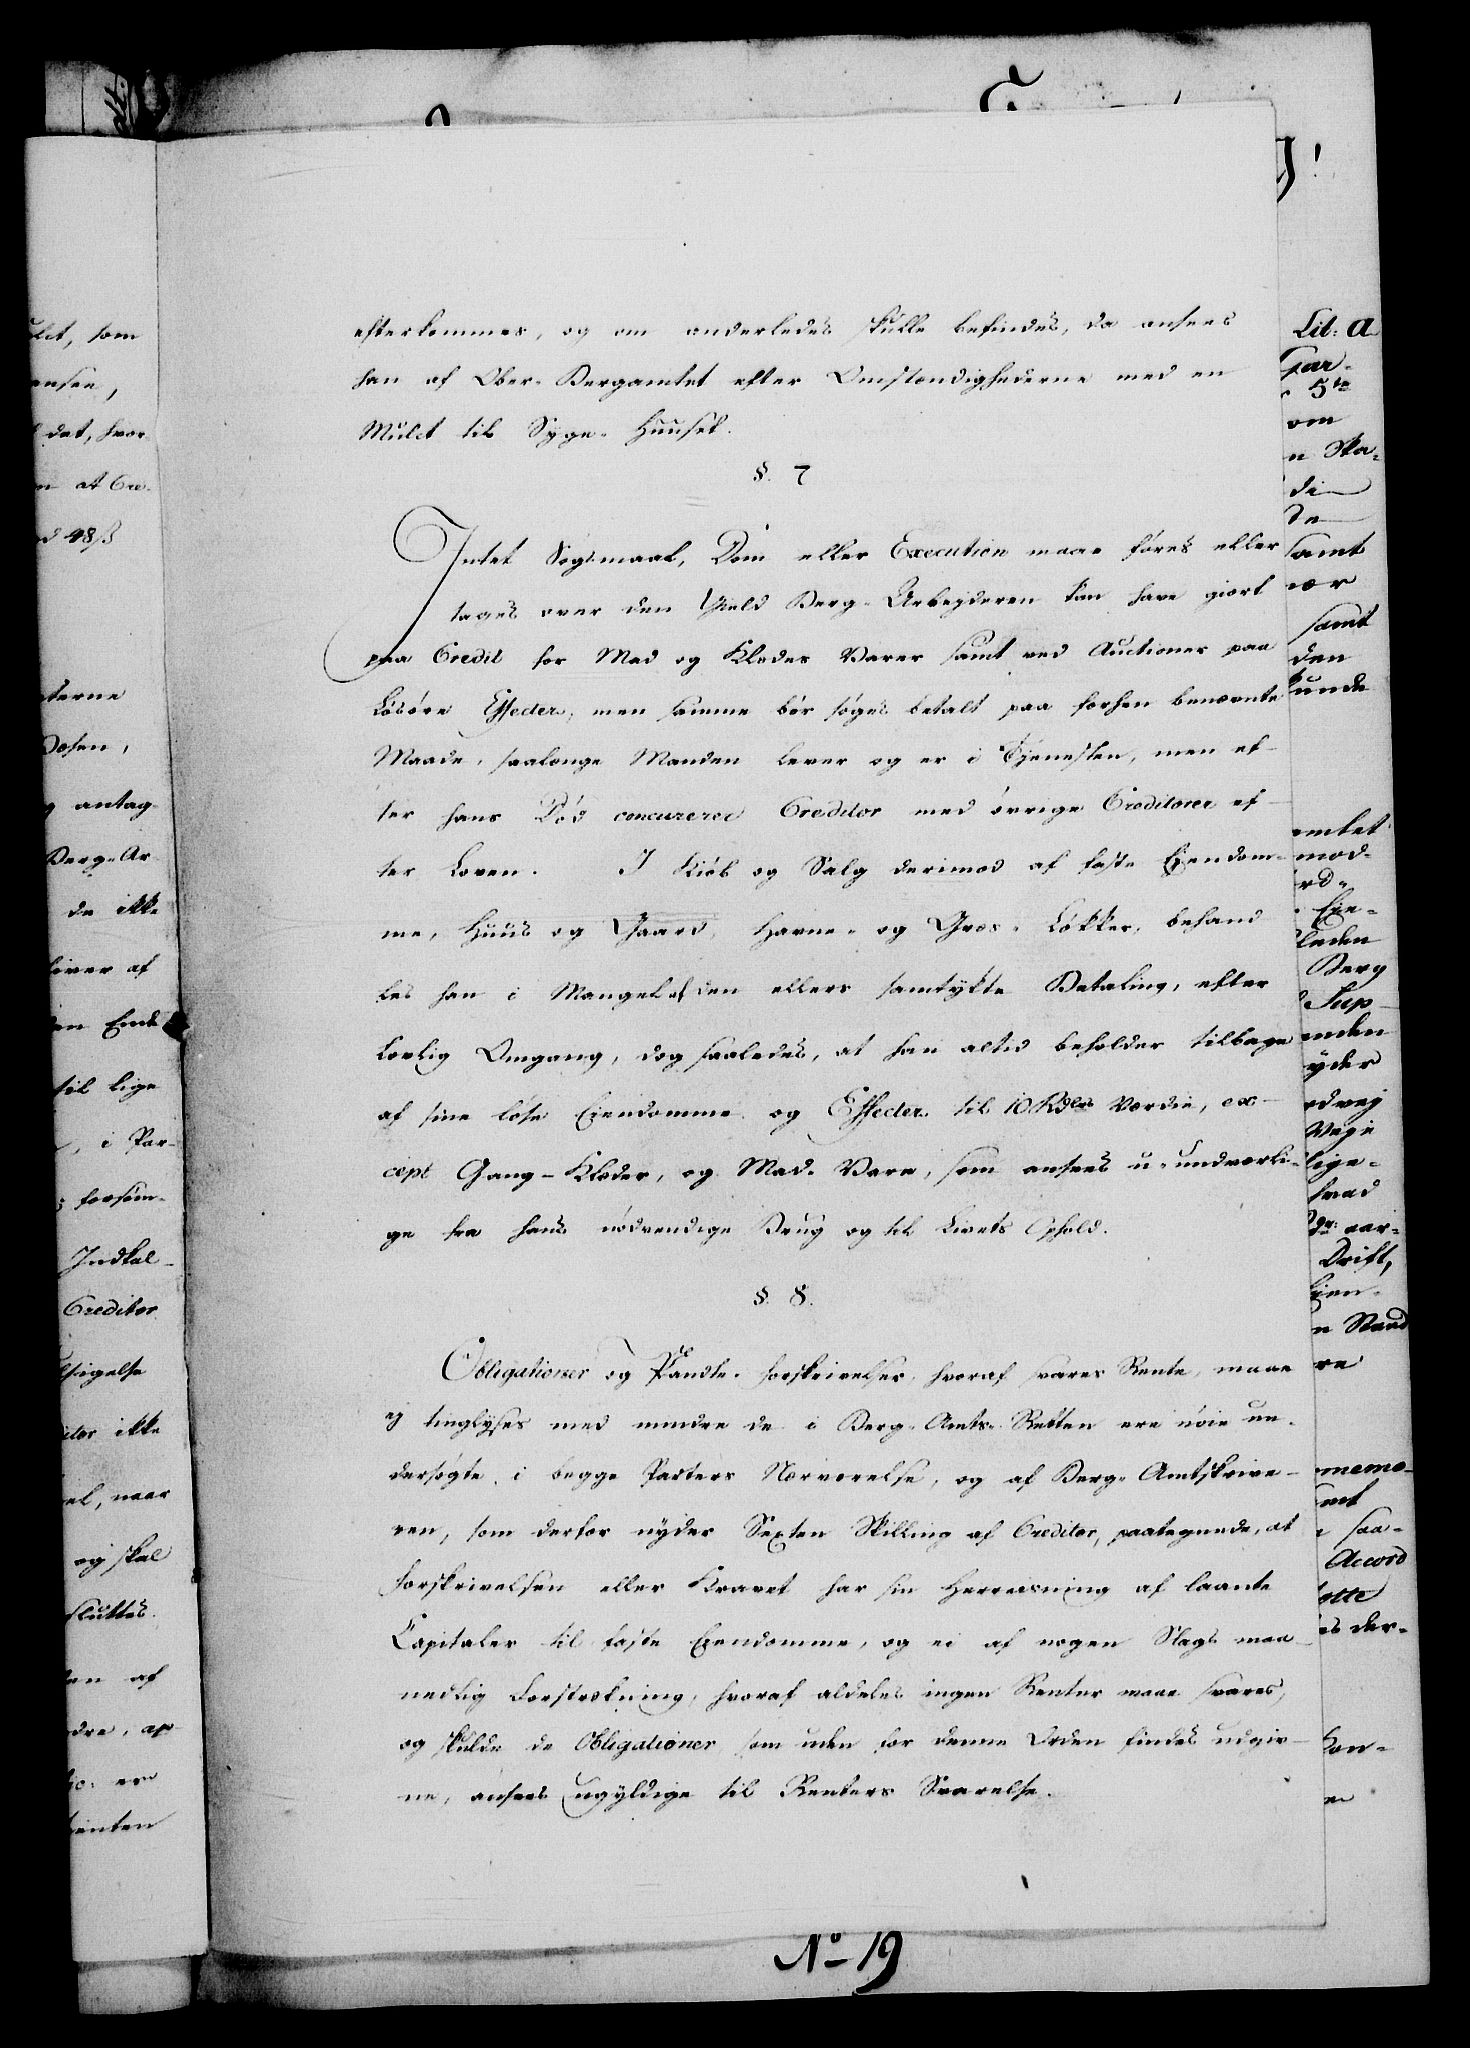 efterkommes, og om anderledes skulle befindes, da ansees
han af Ober-Bergamtet efter Omstændighederne med en
Mulct til Syge-Huuset.
§. 7
Intet Søgsmaal, Dom eller Execution maae føres eller
tages over den Gield Berg-Arbejderen kan have giort
paa Credit for Mad og Klædes Varer samt ved Auctioner paa
Løsøre Effecter, men samme bør søges betalt paa forhen benævnte
Maade, saalænge Manden lever og er i Tjenesten, men ef-
ter hans Død concurerer Creditor med øvrige Creditorer ef-
ter Loven. I Kiøb og Salg derimod af faste Eiendom-
me, Huus og Gaard, Havne- og Græs-Løkker, behand
les han i Mangel af den ellers samtykte Betaling, efter
Lovlig Omgang, dog saaledes, at han altid beholder tilbage
af sine løse Eiendomme og Effecter til 10 Rdlrs Værdie, ex-
cept Gang-Klæder, og Mad-Vare, som ansees u-undværli-
ge fra hans nødvendige Brug og til Livets Ophold.
§. 8.
Obligationer og Pandte-forskrivelser, hvoraf svares Rente, maae
ej tinglyses med mindre de i Berg-Amts-Retten ere nøie un-
dersøgte i begge Parters Nærværelse, og af Berg-Amtskrive-
ren, som derfor nyder Sexten Skilling af Creditor, paategnede, at
forskrivelsen eller Kravet har sin Henvisning af laante
Capitaler til faste Eiendomme, og ei af nogen Slags maa-
nedlig Forstrækning, hvoraf aldeles ingen Renter maae svares,
og skulde de Obligationer, som uden for denne Orden findes udgiv-
ne, ansees ugyldige til Renters Svarelse.
No 19